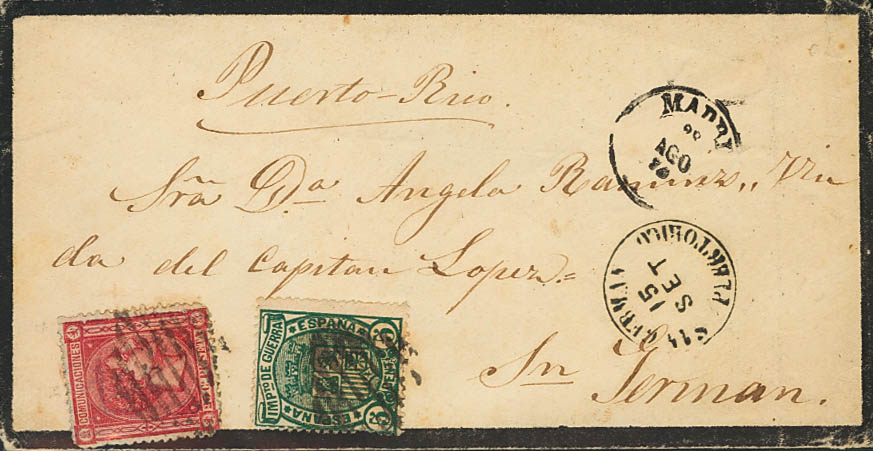 Puerto-Rico.
Sra Da. Angela Ramirez,, Viu
da del Capitan Lopez.=
Sn German.
MADRI
28
AGO
76
PUERTO RICO
15
SET
COMUNICACIONES
ESPAÑA
IMPTO DE GUERRA
ESPAÑA